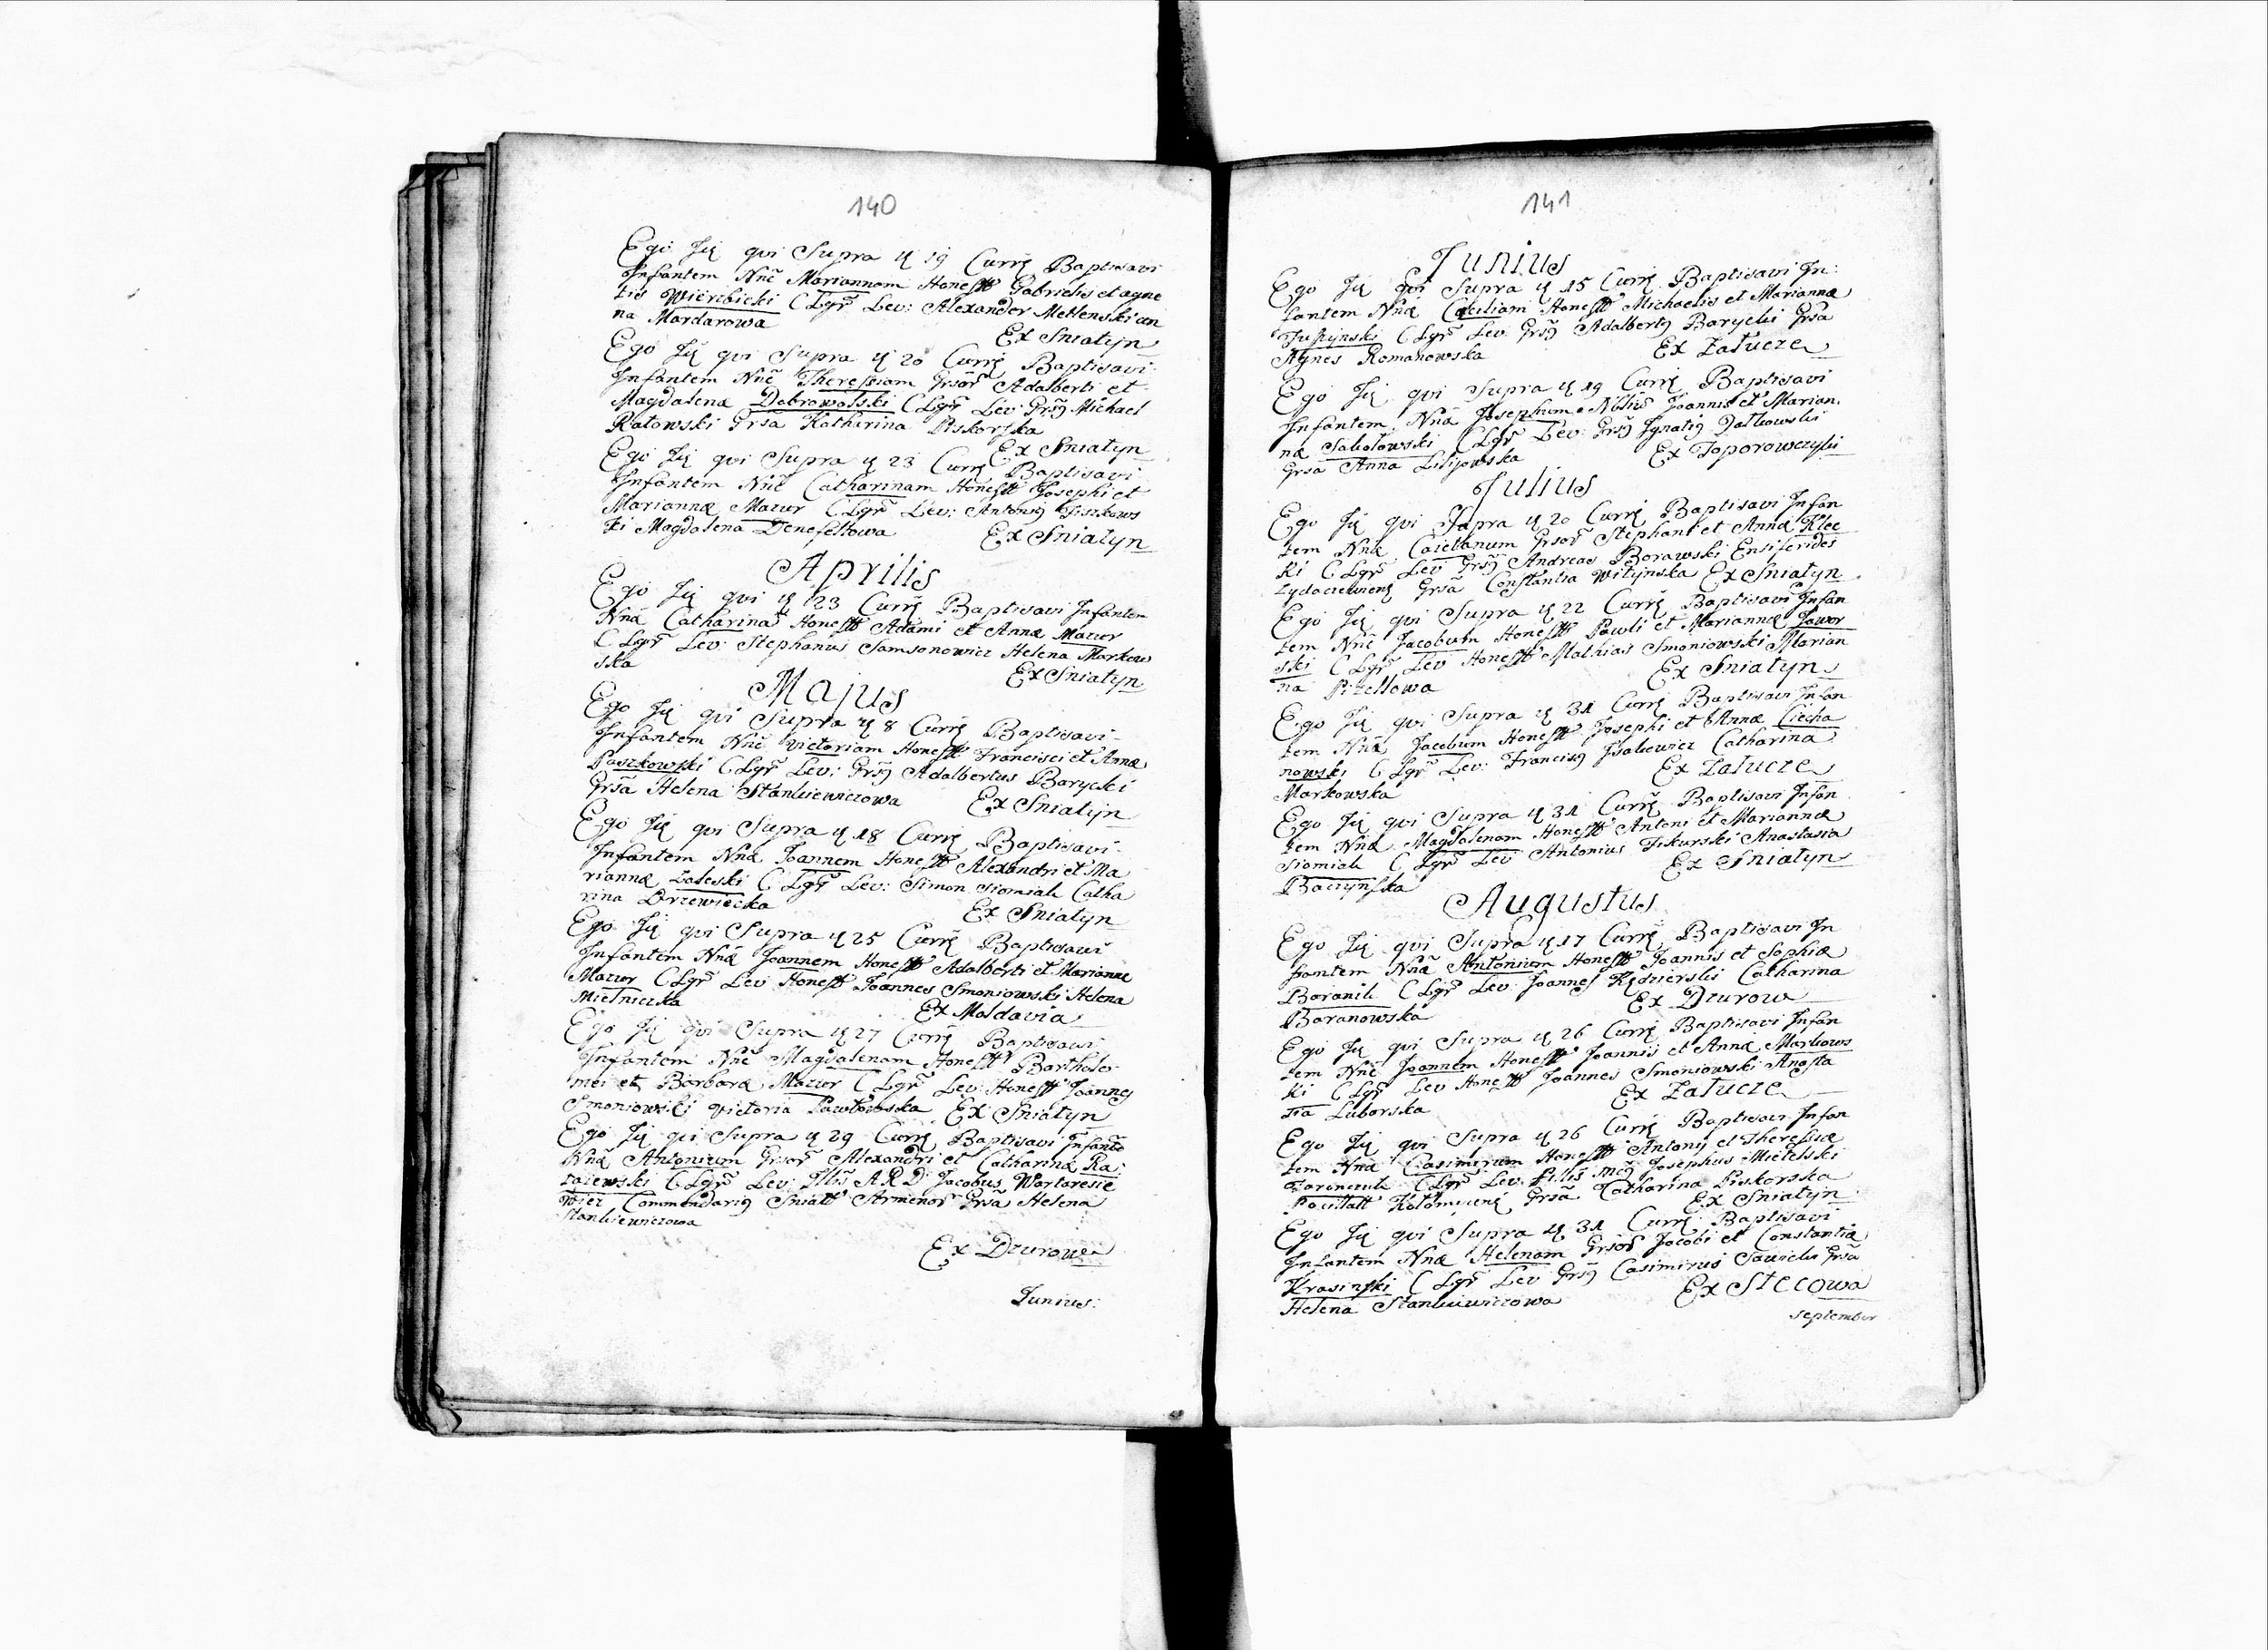 140
Ego Idę qui Supra d 19 Currę Baptisavi
Infantem Nnē Mariannam Honestt Gabrielis et agne
tis Wierzbicki C Lgr̄ Lev: Alexander Metlenski an
na Mardarowa
Ex Sniatyn
Ego Idę qui Supra d 20 Currę Baptisavi
Infantem Nnē Theressiam Grsōr Adalberti et
Magdalenæ Dobrowolski C Lgr̄ Lev: Grsꝯ Michael
Ratowski Grsā Katharina Piskorska
Ex Sniatyn
Ego Idę qui Supra d 23 Currę Baptisavi
Infantem Nnē Catharinam Honestt Josephi et
Mariannæ Mazur C Lgr̄ Lev: Antoniꝯ Tiszkows
ki Magdalena Denefellowa
Ex Sniatyn
Aprilis
Ego Idę qui d 23 Currę Baptisavi Infantem
Nnā Catharina Honestt Adami et Annæ Mazur
C Lgr̄ Lev: Stephanus Samsonowicz Helena Markow
ska
Ex Sniatyn
Majus
Ego Idę qui Supra d 8 Currę Baptisavi
Infantem Nnē Victoriam Honestt Francisci et Annæ
Paszkowski C Lgr̄ Lev: Grsꝯ Adalbertus Barycki
Grsā Helena Stankiewiczowa
Ex Sniatyn
Ego Idę qui Supra d 18 Currę Baptisavi
Infantem Nnā Joannem Honestt Alexandri et Ma
riannæ Zaleski C Lgr̄ Lev: Simon Siomiak Catha
rina Drzewiecka
Ex Sniatyn
Ego Idę qui Supra d 25 Currę Baptisavi
Infantem Nnā Joannem Honestt Adalberti et Mariannæ
Mazur C Lgr̄ Lev Honestt Joannes Smoniowski Helena
Mielniczka
Ex Moldavia
Ego Idę qui Supra d 27 Currę Baptisavi
Infantem Nnē Magdalenam Honestt Bartholo
mei et Barbaræ Mazur C Lgr̄ Lev: Honestt Joannes
Smoniowski Victoria Pawlowska Ex Sniatyn
Ego Idę qui Supra d 29 Currę Baptisavi Infantē
Nnā Antonium Grsōr Alexandri et Catharinæ Ra
Lgr̄ Lev: Illīs A R D Jacobus Wartaresie
wicz Commendariꝯ Sniatt Armenōr Grsā Helena
Stankiewiczowa
Ex Dzurowa
Junius:
141
Junius
Ego Idę qui Supra d 15 Currę Baptisavi In:
fantem Nnā Cæciliam Honestt Michaelis et Mariannæ
C Lgr̄ Lev Grsꝯ Adalbertꝯ Barycki Grsā
Agnes Romanowska
Ex Załucze
Ego Idę qui Supra d 19 Currę Baptisavi
Infantem Nnā Josephum Nblīs Joannis et Marian
næ Sakołowski C Lgr̄ Lev: Grsꝯ Ignatiꝯ Datkowski
Grsā Anna Lisijowska
Ex Toporowczyki
Julius
Ego Idę qui Supra d 20 Currę Baptisavi Infan
tem Nnā Caietanum Grsōr Stephani et Annæ Klec
ki C Lgr̄ Lev Grsꝯ Andreas Borawski Ensiferides
Zydaczewienꝯ Grsā Constantia Witynska Ex Sniatyn
Ego Idę qui Supra d 22 Currę Baptisavi Infan
tem Nnē Jacobum Honestt Pawli et Mariannæ Jawor
ski C Lgr̄ Lev Honestt Mathias Smoniowski Marian
na Pizellowa
Ex Sniatyn
Ego Idę qui Supra d 31 Currę Baptisavi Infan
tem Nnā Jacobum Honestt Josephi et Annæ Ciecha
nowski C Lgr̄ Lev: Franciscꝯ Jsakiewicz Catharina
Markowska
Ex Załucze
Ego Idę qui Supra d 31 Currę Baptisavi Infan
tem Nnā Magdalenam Honestt Antoni et Mariannæ
Siomiak C Lgr̄ Lev Antonius Fiskurski Anastasia
Baczynska
Ex Sniatyn
Augustus
Ego Idę qui Supra d 17 Currę Baptisavi In
fantem Nnā Antonium Honestt Joannis et Sophiæ
Baranik C Lgr̄ Lev: Joannes Kędzierski Catharina
Baranowska
Ex Dzurow
Ego Idę qui Supra d 26 Currę Baptisavi Infan
tem Nnē Joannem Honestt Joannis et Annæ Markows
ki C Lgr̄ Lev Honestt Joannes Smoniowski Anasta
sia Luborska
Ex Załucze
Ego Idę qui Supra d 26 Currę Baptisavi Infan
tem Nnā Casimirum Honestt Antonij et Theressiæ
C Lgr̄ Lev: Josephus Mielski
Kołomyenꝯ Grsā Catharina Piskorska
Ex Sniatyn
Ego Idę qui Supra d 31 Currę Baptisavi
Infantem Nnā Helenam Grsōr Jacobi et Constantiæ
Krasinski C Lgr̄ Lev Grsꝯ Casimirus Sawicki Grsā
Helena Stankiewiczowa
Ex Stecowa
September